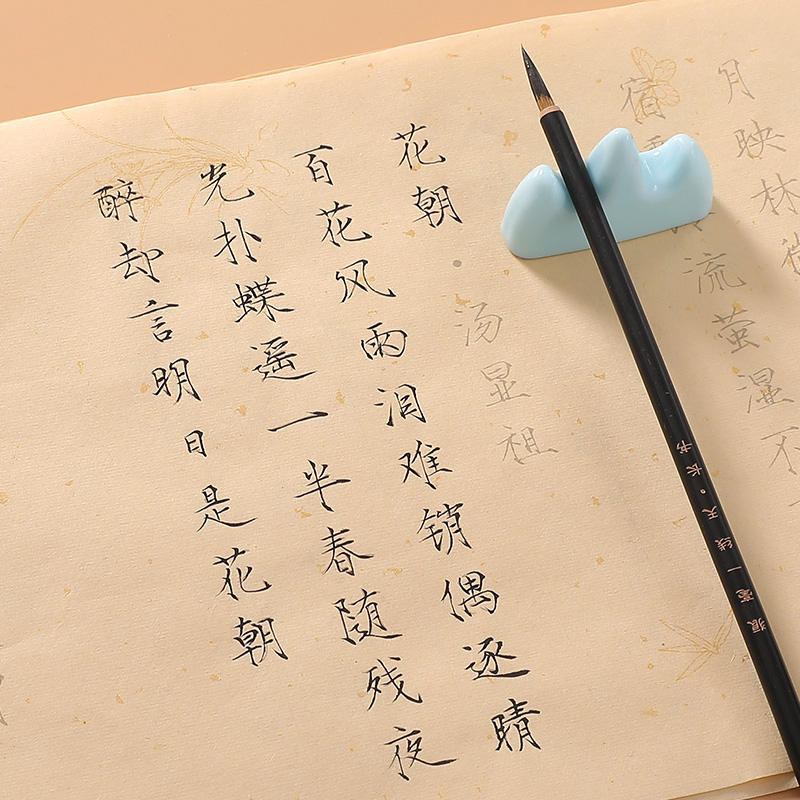 月映林微
宿流萤湿不
花朝
汤显祖
百花风雨泪难销偶逐晴
光扑蝶遥一半春随残夜
醉却言明日是花朝
狼毫一线天·长书